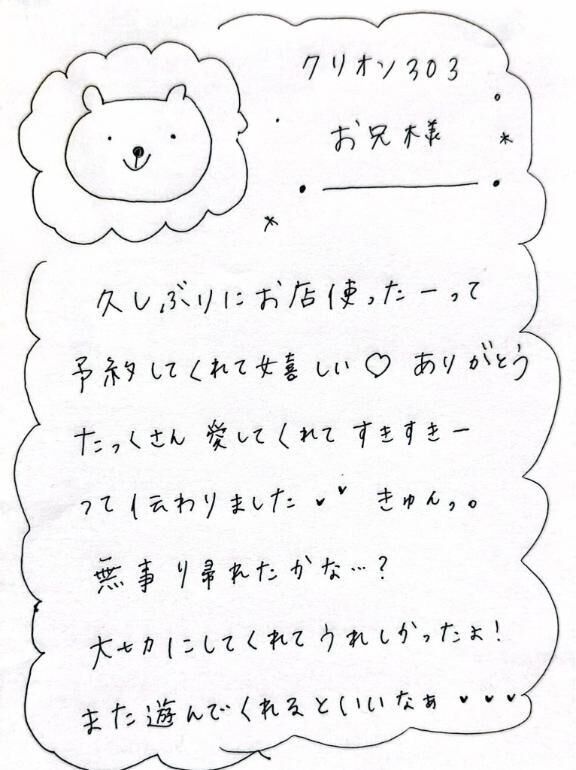 クリオン303
お兄様
久しぶりにお店使ったーって
予約してくれて嬉しい♡ ありがとう
たっくさん 愛してくれて すきすきー
って伝わりました ♥♥ きゅんっ。
無事り帰れたかな…?
大セカにしてくれてうれしかったよ!
また遊んでくれるといいなぁ ♥♥♥